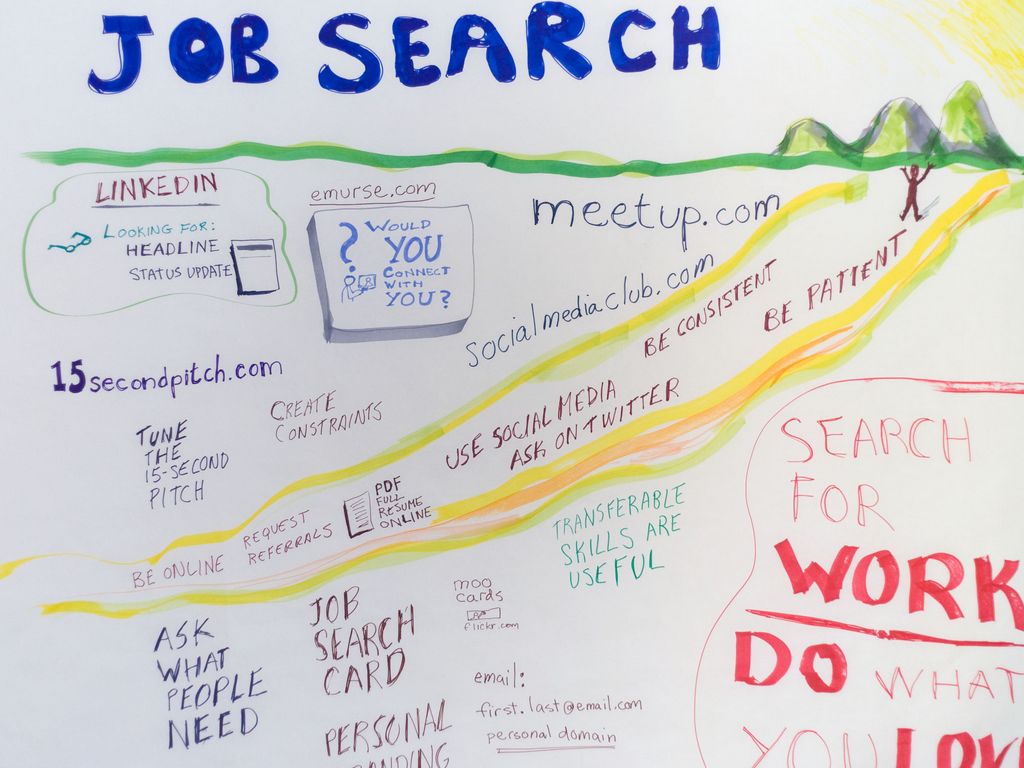 JOB SEARCH
LINKEDIN
LOOKING FOR:
HEADLINE
STATUS UPDATE
emurse.com
? WOULD
YOU
CONNECT
WITH
YOU?
meetup.com
socialmediaclub.com
BE CONSISTENT
BE PATIENT
15secondpitch.com
TUNE
THE
15-SECOND
PITCH
CREATE
CONSTRAINTS
USE SOCIAL MEDIA
ASK ON TWITTER
PDF
FULL
RESUME
ONLINE
REQUEST
REFERRALS
BE ONLINE
TRANSFERABLE
SKILLS ARE
USEFUL
SEARCH
FOR
WORK
DO WHAT
YOU LOVE
ASK
WHAT
PEOPLE
NEED
JOB
SEARCH
CARD
PERSONAL
moo
cards
flickr.com
email:
first.last@email.com
personal domain